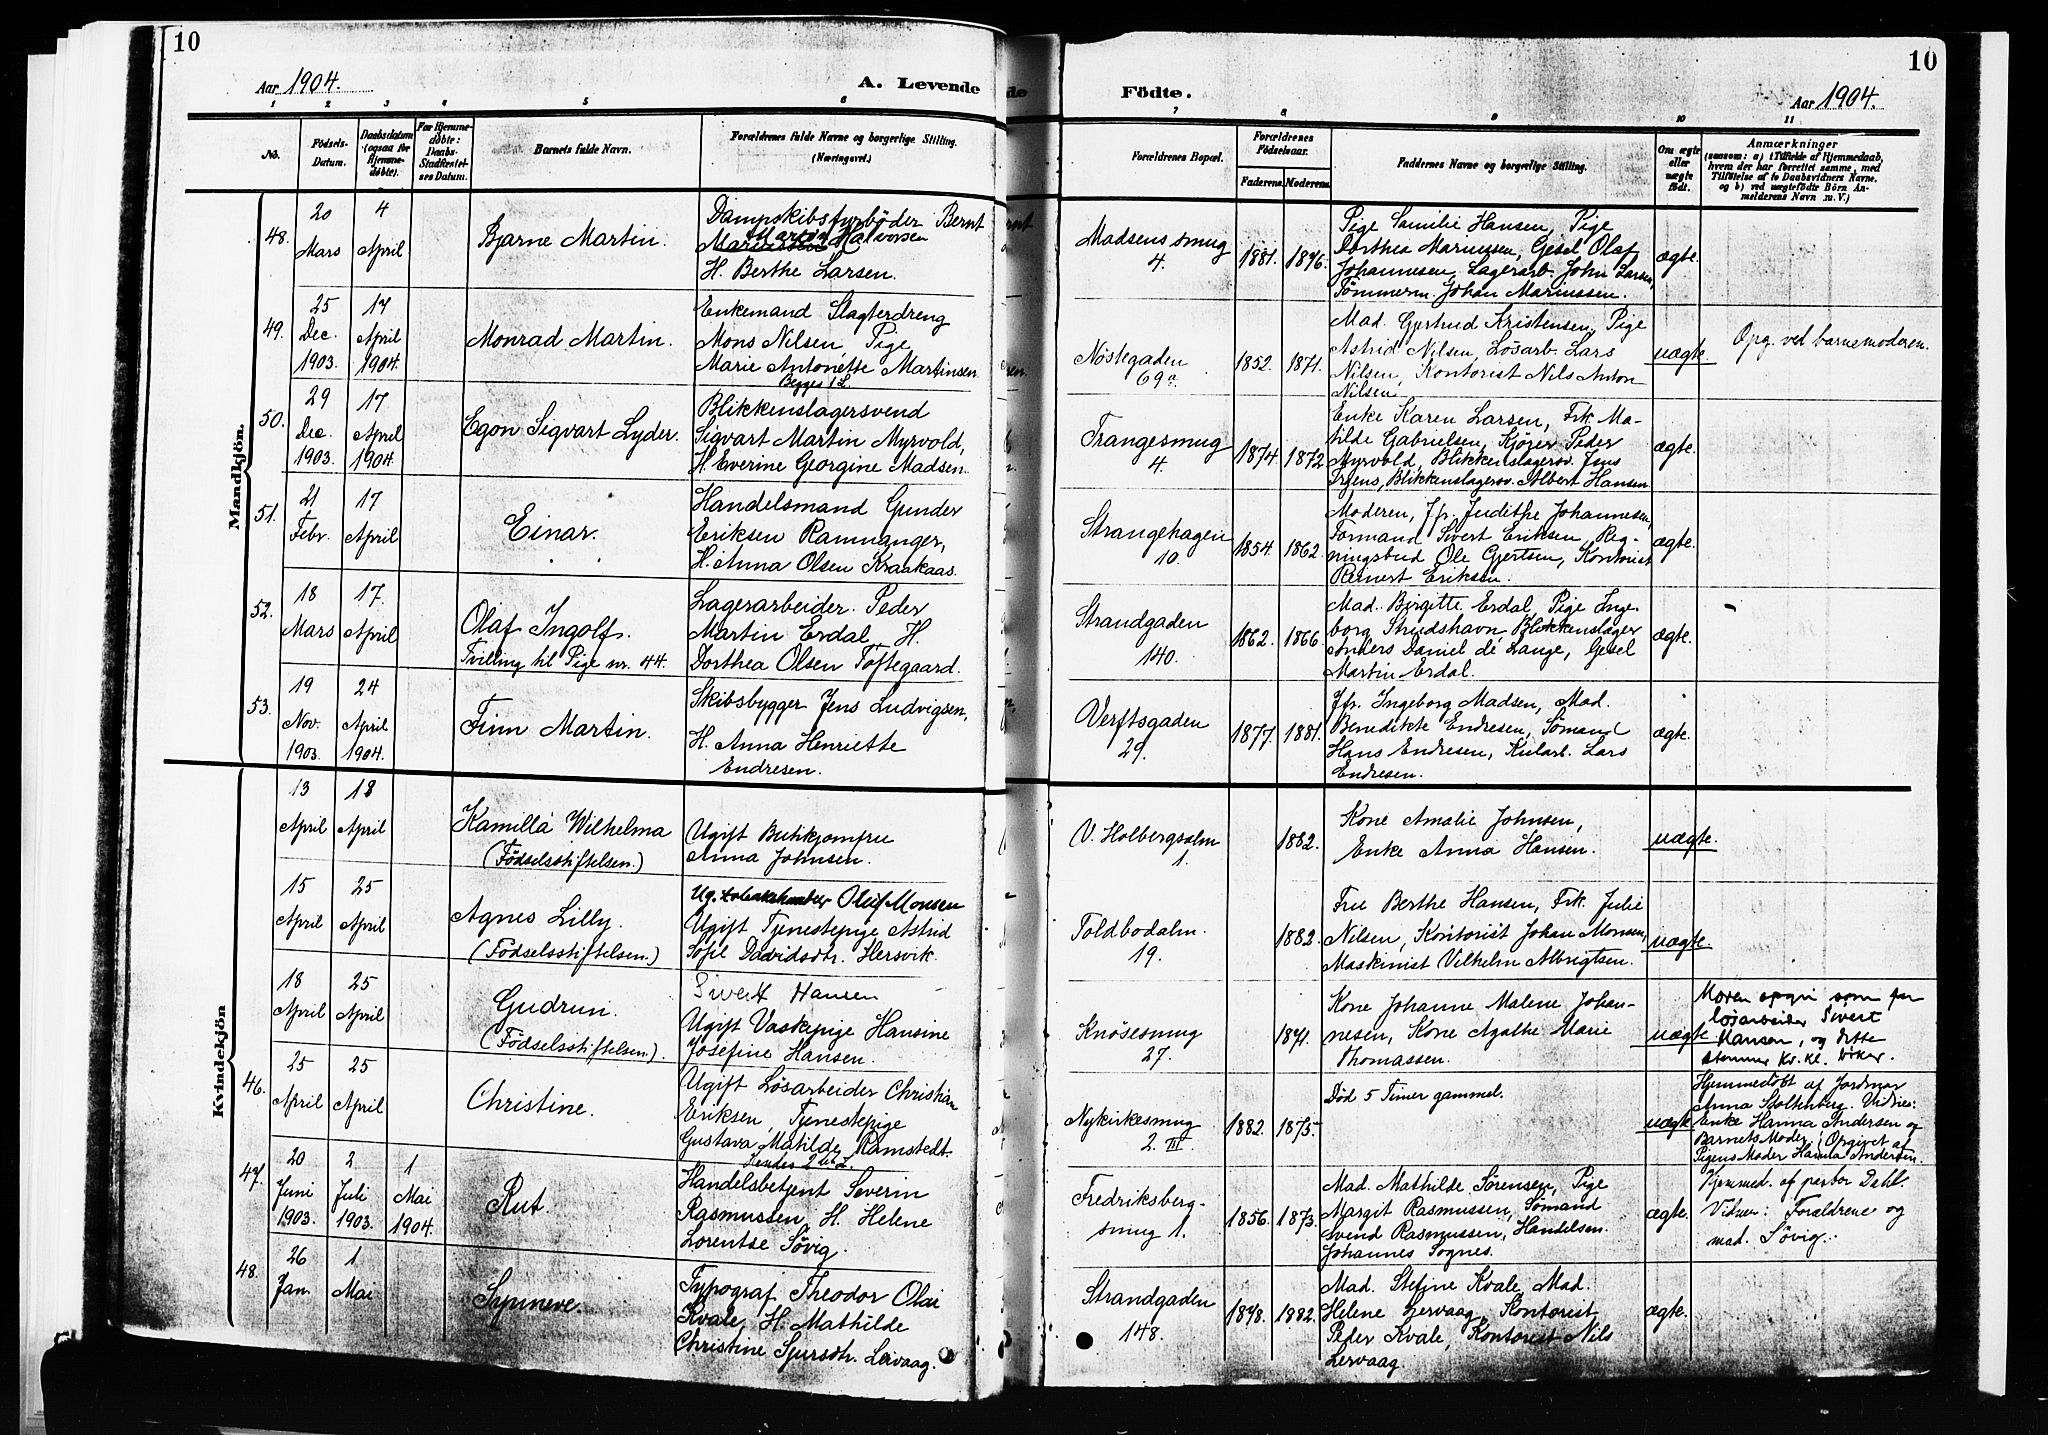 10
Aar 1904.
A. Levende
1 2 3 4 5 6
No.
Födsels-
Datum.
Daabsdatum
(ogsaa for
Hjemme-
døbte).
For Hjemme-
døbte:
Daabs-
Stadfæstel-
ses Datum.
Barnets fulde Navn.
Forældrenes fulde Navne og borgerlige Stilling.
(Næringsvei.)
Mandkjön.
48.
20
Mars
4
April
Bjarne Martin.
Dampskibsfyrbøder Bernt
Martin Halvorsen
H. Berthe Larsen.
49.
25
Dec.
1903.
17
April
1904.
Monrad Martin.
Enkemand Slagterdreng
Mons Nilsen, Pige
Marie Antonette Martinsen
Begges 1ste
50.
29
Dec.
1903.
17
April
1904.
Egon Sigvart Lyder.
Blikkenslagersvend
Sigvart Martin Myrvold,
H. Everine Georgine Madsen.
51.
21
Febr.
17
April
Einar.
Handelsmand Gunder
Eriksen Ramnanger,
H. Anna Olsen Kraakaas.
52.
18
Mars
17.
April
Olaf Ingolf.
Tvilling til Pige nr. 44.
Lagerarbeider Peder
Martin Erdal, H.
Dorthea Olsen Töftegaard.
53.
19
Nov.
1903.
24
April
1904.
Finn Martin.
Skibsbygger Jens Ludvigsen,
H. Anna Henriette
Endresen.
Kvindekjön
13
April
18
April
Kamilla Wilhelma
(Födselsstiftelsen.)
Ugift Butikjomfru
Anna Johnsen.
15
April
25
April
Agnes Lilly.
(Födselsstiftelsen.)
Ug. Oluf Monsen
Ugift Tjenestepige Astrid
Sofie Davidsdtr. Hersvik.
18
April
25
April
Gudrun.
(Födselsstiftelsen.)
Sivert Hansen
Ugift Vaskepige Hansine
Josefine Hansen.
46.
25
April
25
April
Christine.
Ugift Løsarbeider Christian
Eriksen, Tjenestepige
Gustava Matilde Ramstedt.
Hendes 2det
47.
20
Juni
1903.
2
Juli
1903.
1
Mai
1904.
Rut.
Handelsbetjent Severin
Rasmussen, H. Helene
Lorentse Søvig.
48.
26
Jan.
1
Mai
Synneve.
Typograf Theodor Olai
Kvale, H. Mathilde
Christine Sjursdtr. Lervaag.
10
Födte.
Aar 1904.
7 8 9 10 11
Forældrenes Bopæl.
Forældrenes
Fødselsaar.
Faderens. Moderens.
Faddernes Navne og borgerlige Stilling.
Om ægte
eller
uægte
født.
Anmærkninger
(saasom: a) i Tilfælde af Hjemmedaab,
hvem der har forrettet samme, med
Tilføielse af to Daabsvidners Navne,
og b) ved uægtefødte Börn An-
melderens Navn m. V.)
Madsens smug
4.
1881. 1876.
Pige Camilie Hansen, Pige
Dorthea Marinssen, Gesel Olaf
Johannesen, Lagerarb. John Larsen,
Tömmerm. Johan Marinssen.
ægte.
Nöstegaden
69a.
1852. 1871.
Mad. Gertrud Kristensen, Pige
Astrid Nilsen, Løsarb. Lars
Nilsen, Kontorist Nils Anton
Nilsen.
uægte.
Opg. ved barnemoderen.
Trangesmug
4.
1874. 1872
Enke Karen Larsen, Frk. Ma-
tilde Gabrielsen, Kjøper Peder
Myrvold, Blikkenslagersv. Jens
Irgens, Blikkenslagersv. Albert Hansen
ægte.
Strangehagen
10.
1854. 1862.
Moderen, Jfr. Judithe Johannesen,
Formand Sivert Eriksen, Reg-
ningsbud Ole Gjertsen, Kontorist
Reinert Eriksen.
ægte.
Strandgaden
140.
1862. 1866
Mad. Birgitte Erdal, Pige Inge-
borg Strudshavn, Blikkenslager
Anders Daniel de Lange, Gesel
Martin Erdal.
ægte.
Verftsgaden
29.
1877. 1881.
Jfr. Ingeborg Madsen, Mad.
Benedikte Endresen, Sømand
Hans Endresen, Kularb. Lars
Endresen.
ægte.
V. Holbergsalm
1.
1882.
Kone Amalie Johnsen,
Enke Anna Hansen.
uægte.
Toldbodalm.
19.
1882.
Frue Berthe Hansen, Frk. Julie
Nilsen, Kontorist Johan Monsen,
Maskinist Vilhelm Albrigtsen.
uægte.
Knøsesmug
27.
1871.
Kone Johanne Malene Johan-
nesen, Kone Agathe Marie
Thomassen.
uægte
Moren opgir som far
løsarbeider Sivert
Hansen, og dette
stemmer
Nykirkesmug
2. III.
1882. 1875.
Død 5 Timer gammel.
uægte
Hjemmedöbt af Jordmor
Anna Stoltenberg. Vidner:
Enke Hanna Andersen og
Barnets Moder. Opgivet af
Pigens Moder Hanna Andersen.
Fredriksberg-
smug 1.
1856. 1873.
Mad. Mathilde Sörensen, Pige
Margit Rasmussen, Sømand
Svend Rasmussen, Handelsm.
Johannes Sognes.
ægte.
Hjemmed. af pastor Dahl.
Vidner: Forældrene og
mad. Søvig.
Strandgaden
148.
1878. 1882.
Mad. Stefine Kvale, Mad.
Helene Lervaag, Kontorist
Peder Kvale, Kontorist Nils
Lervaag.
ægte.